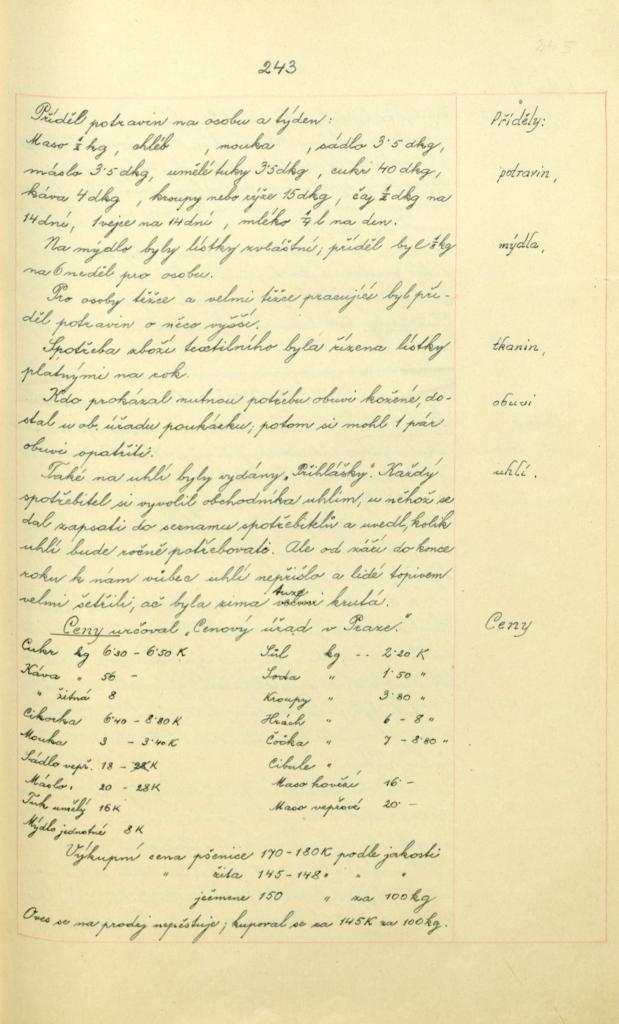 243
Příděl potravin na osobu a týden:
Přiděly:
Maso ½ kg, chléb , mouka , sádlo 3·5 dkg,
máslo 3·5 dkg, umělé tuky 35 dkg, cukr 40 dkg,
potravin,
káva 4 dkg , kroupy nebo rýže 15 dkg, čaj ½ dkg na
14 dní, 1 vejce na 14 dní , mléko ¼ l na den.
Na mýdlo byly lístky zvláštní; příděl byl ½ kg
mýdla,
na 6 neděl pro osobu.
Pro osoby těžce a velmi těžce pracující byl pří-
děl potravin o něco vyšší.
Spotřeba zboží textilního byla řízena lístky
tkanin,
platnými na rok.
Kdo prokázal nutnou potřebu obuvi kožené, do-
obuvi
stal u ob. úřadu poukázku; potom si mohl 1 pár
obuvi opatřiti.
Také na uhlí byly vydány „Přihlášky". Každý
uhlí.
spotřebitel si vyvolil obchodníka uhlím, u něhož se
dal zapsati do seznamu spotřebitelův a uvedl, kolik
uhlí bude ročně potřebovati. Ale od září do konce
roku k nám vůbec uhlí nepřišlo a lidé topivem
velmi šetřili, ač byla zima tuze krutá.
Ceny určoval „Cenový úřad v Praze."
Ceny
Cukr kg 6·30 – 6·50 K
Sůl kg -- 2·20 K
Káva „ 56 –
Soda „ 1·50 „
„ žitná 8
Kroupy „ 3·80 „
Cikorka 6·40 – 8·80 K
Hrách „ 6 – 8 „
Mouka 3 – 3·40 K
Čočka „ 7 – 8·80 „
Sádlo vepř. 18 – K
Cibule „
Máslo. 20 – 28 K
Maso hovězí 16 –
Tuk umělý 16 K
Maso vepřové 20 –
Mýdlo jednotné 8 K
Výkupní cena pšenice 170 – 180 K podle jakosti
„ žita 145 – 148 „ „ „
ječmene 150 „ za 100 kg
Oves se na prodej nepěstuje; kupoval se za 145 K za 100 kg.